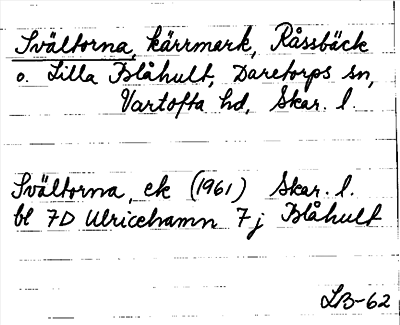 Svältorna, kärrmark, Råssbäck
o. Lilla Blåhult, Daretorps sn,
Vartofta hd, Skar. l.
Svältorna, ek (1961) Skar. l.
bl 7D Ulricehamn 7j Blåhult
LB-62